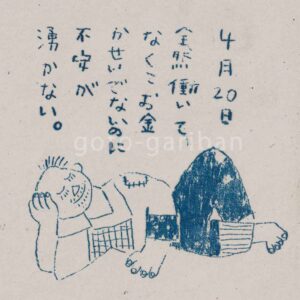 4月20日
全然働いて
なくてお金
かせいでないのに
不安が
湧かない。
gono-gariban